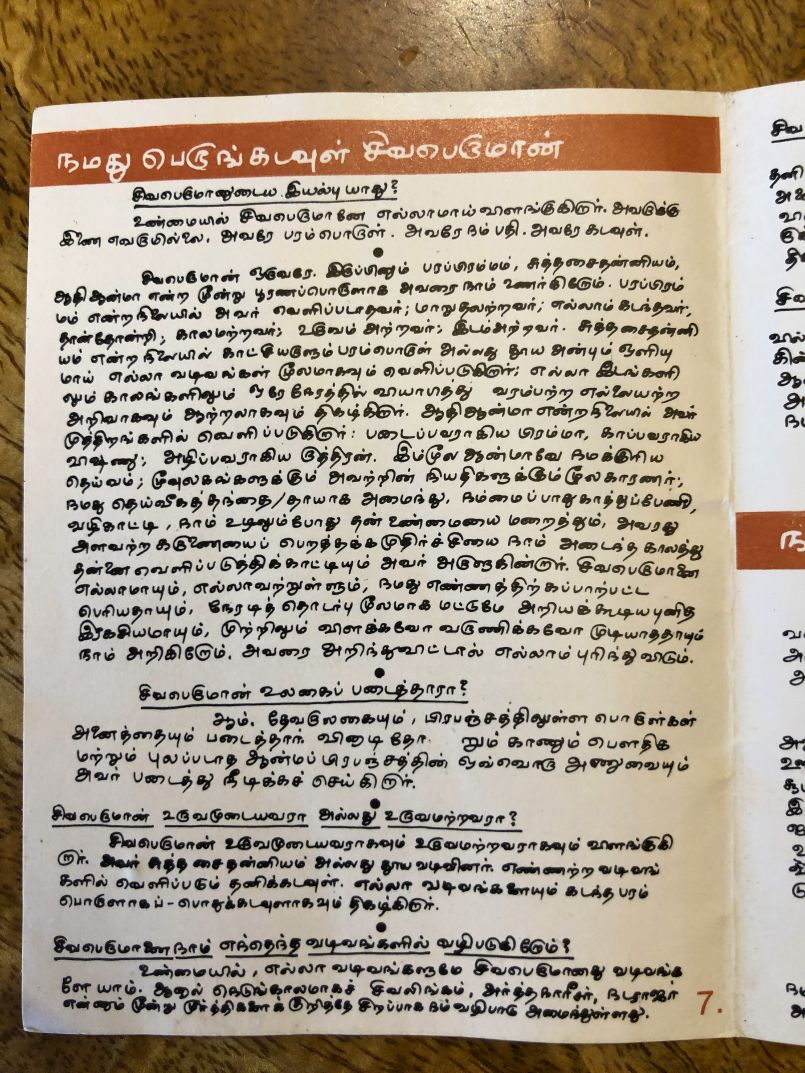 நமது பெருங்கடவுள் சிவபெருமான்
சிவபெருமானுடைய இயல்பு யாது?
உண்மையில் சிவபெருமானே எல்லாமாய் விளங்குகிறார். அவருக்கு
இணை எவருமில்லை. அவரே பரம்பொருள். அவரே நம் பதி. அவரே கடவுள்.
சிவபெருமான் ஒருவரே. இருப்பினும் பரப்பிரம்மம், சுத்தசைதன்னியம்,
ஆதி ஆன்மா என்ற மூன்று பூரணப்பொருளாக அவரை நாம் உணர்கிறோம். பரப்பிரம்
மம் என்ற நிலையில் அவர் வெளிப்படாதவர்; மாறுதலற்றவர்; எல்லாம் கடந்தவர்,
தான்தோன்றி; காலமற்றவர்; உருவம் அற்றவர்; இடம்அற்றவர். சுத்தசைதன்னி
யம் என்ற நிலையில் காட்சியருளும் பரம்பொருள் அல்லது தூய அன்பும் ஒளியு
மாய் எல்லா வடிவங்கள் மூலமாகவும் வெளிப்படுகிறார்; எல்லா இடங்களி
லும் காலங்களிலும் ஒரே நேரத்தில் வியாபித்து வரம்பற்ற எல்லையற்ற
அறிவாகவும் ஆற்றலாகவும் திகழ்கிறார். ஆதிஆன்மா என்ற நிலையில் அவர்
முத்திறங்களில் வெளிப்படுகிறார்: படைப்பவராகிய பிரம்மா, காப்பவராகிய
விஷ்ணு; அழிப்பவராகிய ருத்திரன். இம்மூல ஆன்மாவே நமக்குரிய
தெய்வம்; மூவுலகங்களுக்கும் அவற்றின் நியதிகளுக்கும் மூல காரணர்;
நமது தெய்வீகத்தந்தை/தாயாக அமைந்து, நம்மைப் பாதுகாத்துப்பேணி,
வழிகாட்டி, நாம் உழலும்போது தன் உண்மையை மறைத்தும், அவரது
அளவற்ற கருணையைப் பெறத்தக்க முதிர்ச்சியை நாம் அடைந்த காலத்து
தன்னை வெளிப்படுத்திக்காட்டியும் அவர் அருளுகின்றார். சிவபெருமானை
எல்லாமாயும், எல்லாவற்றுள்ளும், நமது எண்ணத்திற்கப்பாற்பட்ட
பெரியதாயும், நேரடித் தொடர்பு மூலமாக மட்டுமே அறியக்கூடிய புனித
இரகசியமாயும், முற்றிலும் விளக்கவோ வருணிக்கவோ முடியாததாயும்
நாம் அறிகிறோம். அவரை அறிந்துவிட்டால் எல்லாம் புரிந்து விடும்.
சிவபெருமான் உலகைப் படைத்தாரா?
ஆம். தேவருலகையும், பிரபஞ்சத்திலுள்ள பொருள்கள்
அனைத்தையும் படைத்தார். வினாடி தோ றும் காணும் பௌதிக
மற்றும் புலப்படாத ஆன்மப் பிரபஞ்சத்தின் ஒவ்வொரு அணுவையும்
அவர் படைத்து நீடிக்கச் செய்கிறார்.
சிவபெருமான் உருவமுடையவரா அல்லது உருவமற்றவரா?
சிவபெருமான் உருவமுடையவராகவும் உருவமற்றவராகவும் விளங்குகி
றார். அவர் சுத்த சைதன்னியம் அல்லது தூய வடிவினர். எண்ணற்ற வடிவங்
களில் வெளிப்படும் தனிக்கடவுள். எல்லா வடிவங்களையும் கடந்த பரம்
பொருளாகப் - பொதுக்கடவுளாகவும் திகழ்கிறார்.
சிவபெருமானை நாம் எந்தெந்த வடிவங்களில் வழிபடுகிறோம்?
உண்மையில், எல்லா வடிவங்களுமே சிவபெருமானது வடிவங்க
ளே யாம். ஆனால் நெடுங்காலமாகச் சிவலிங்கம், அர்த்தநாரீசர், நடராஜர்
என்னும் மூன்று மூர்த்திகளைக் குறித்தே சிறப்பாக நம் வழிபாடு அமைந்துள்ளது.
7.